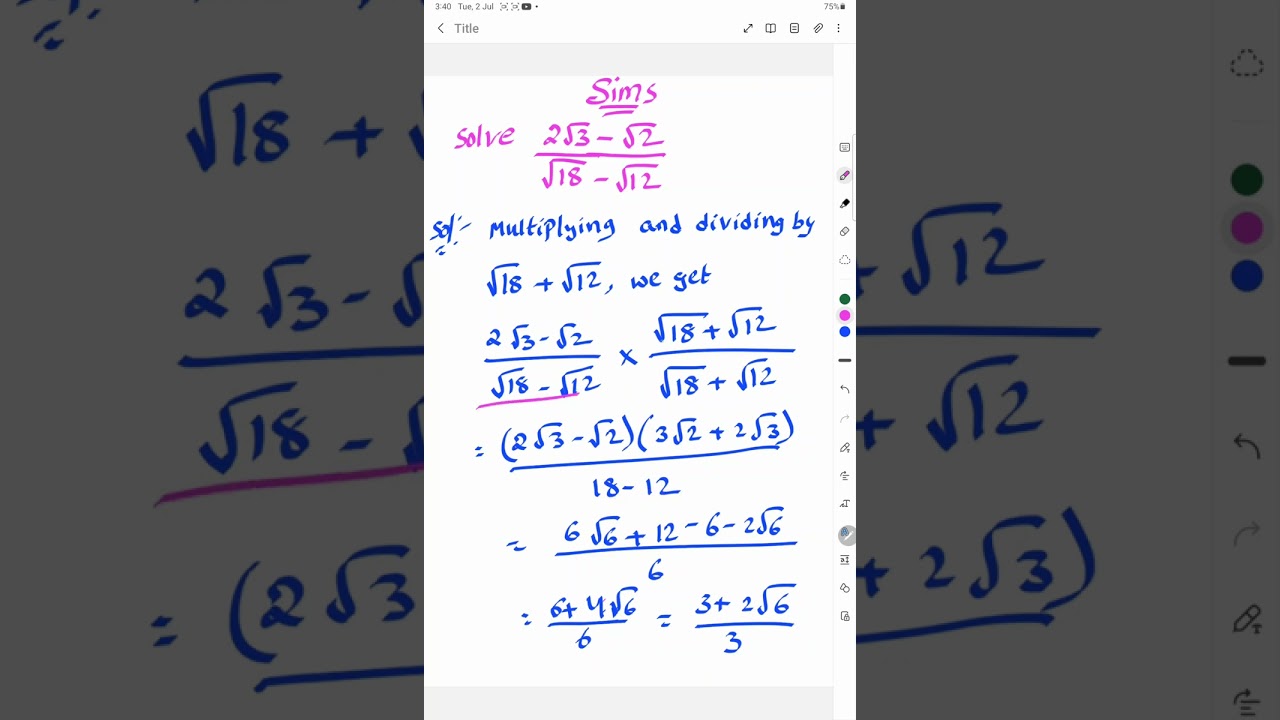 3:40 Tue, 2 Jul
75%
Title
Sims
Solve (2√3 - √2)/(√18 - √12)
Sol:- Multiplying and dividing by
√18 + √12, we get
(2√3 - √2)/(√18 - √12) × (√18 + √12)/(√18 + √12)
= ((2√3 - √2)(3√2 + 2√3))/(18 - 12)
= (6√6 + 12 - 6 - 2√6)/6
= (6 + 4√6)/6 = (3 + 2√6)/3